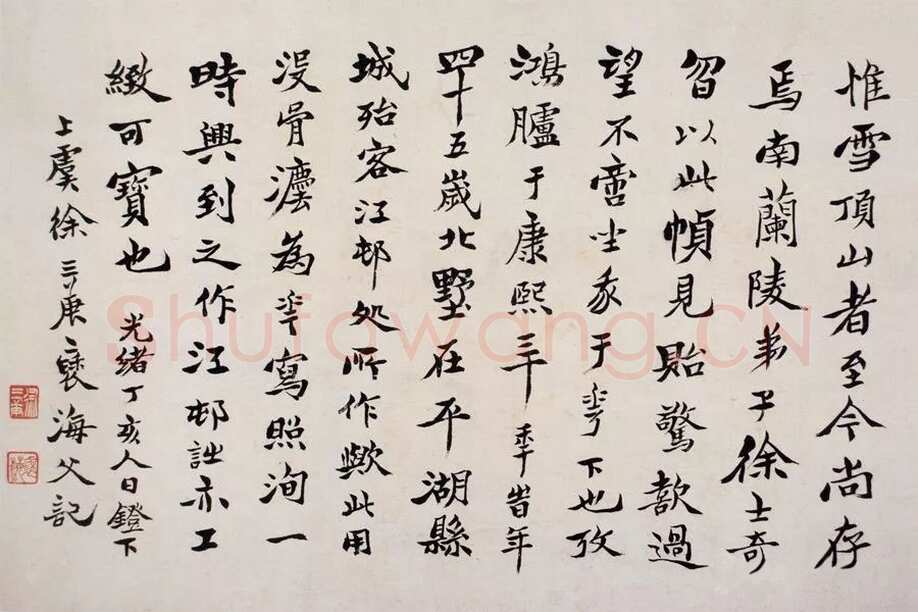 惟雪頂山者至今尚存
焉南蘭陵弟子徐士奇
曶以此幀見貽驚歎過
望不啻坐我于華下也攷
鴻臚于康熙三十秊旹年
四十五歲北墅在平湖縣
城殆客江邨処所作歟此用
没骨灋為華寫照洵一
時興到之作江邨詘亦工
緻可寶也 光緒丁亥人日鐙下
上虞徐三庚褱海父記
Shufawang.CN